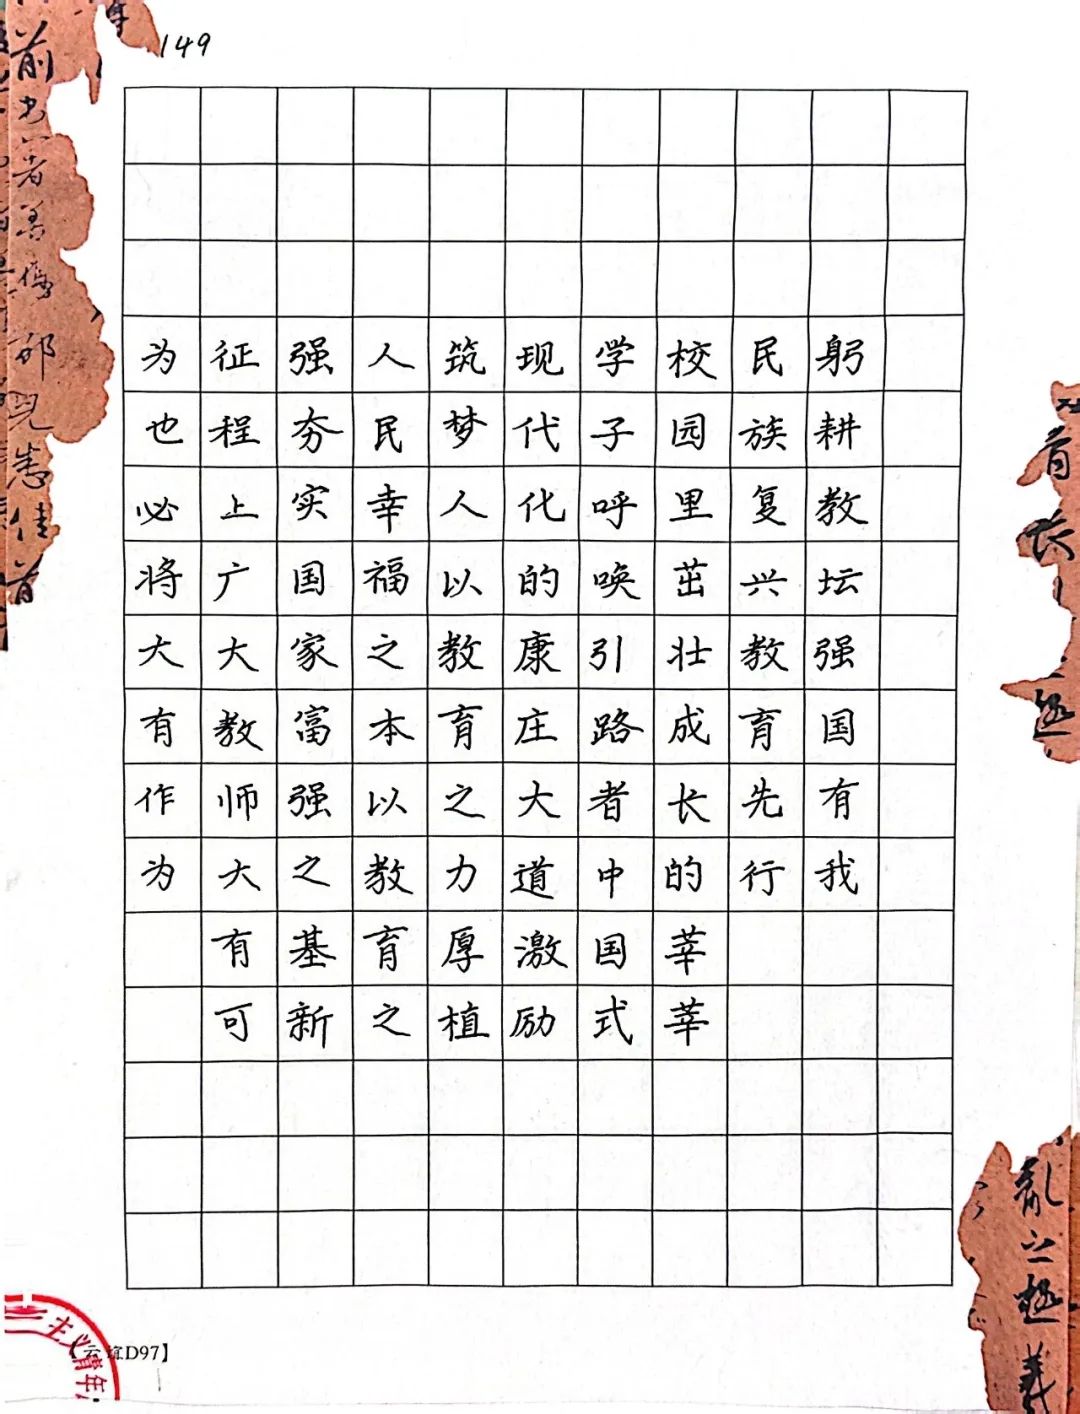 149
躬耕教坛强国有我
民族复兴教育先行
校园里茁壮成长的莘莘
学子呼唤引路者中国式
现代化的康庄大道激励
筑梦人以教育之力厚植
人民幸福之本以教育之
强夯实国家富强之基新
征程上广大教师大有可
为也必将大有作为
乱之極義
主义青年
D97】